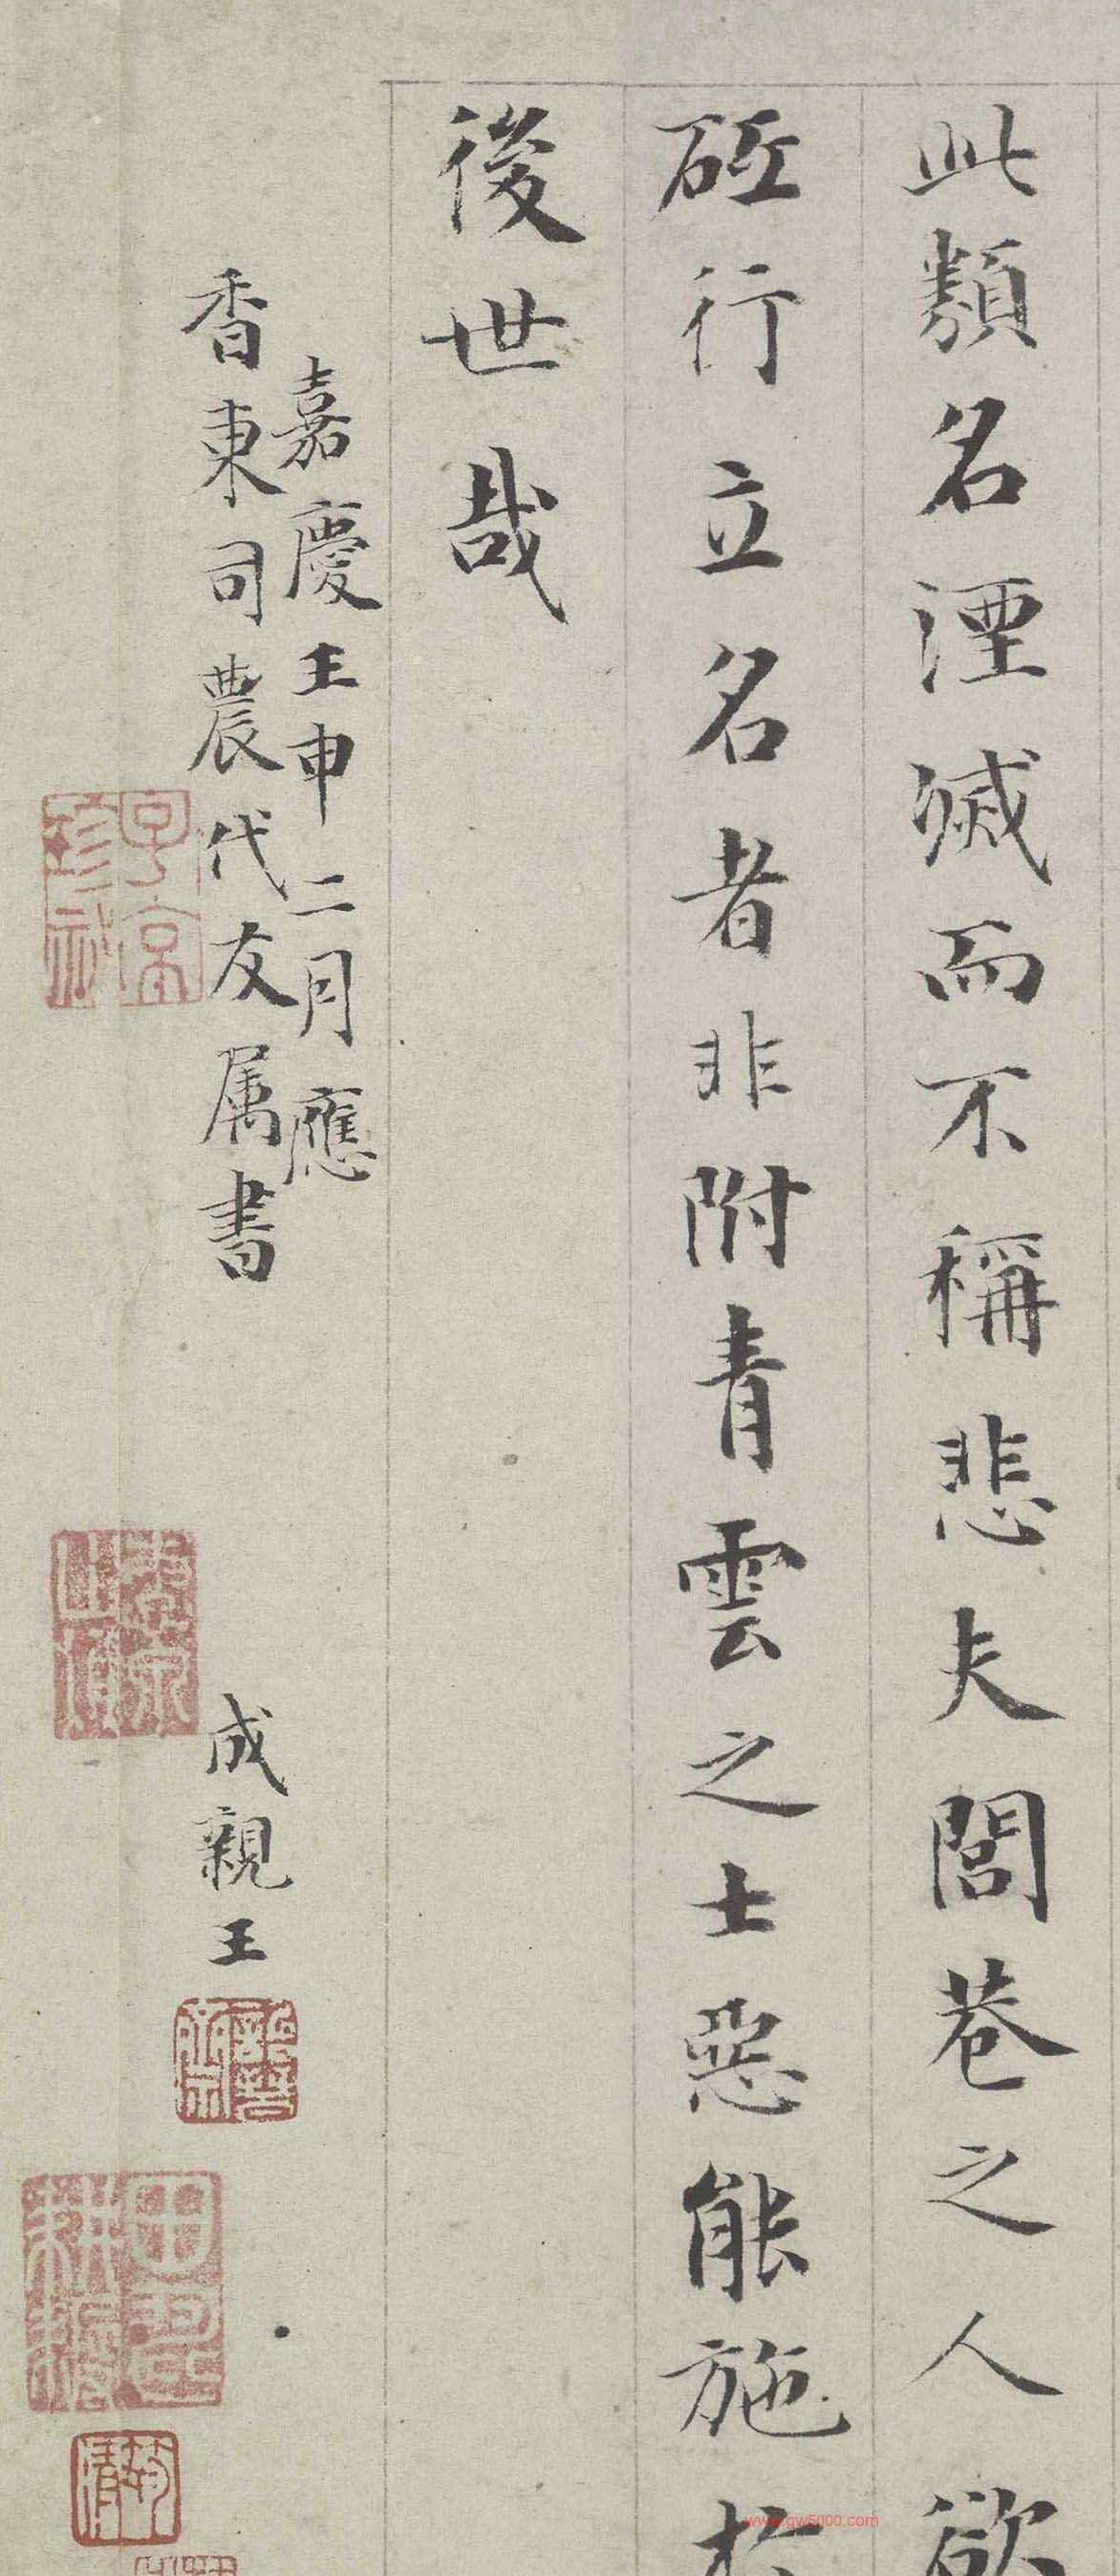 此類名湮滅而不稱悲夫閭巷之人欲
砥行立名者非附青雲之士惡能施於
後世哉
嘉慶壬申二月應
香東司農代友属書
成親王
子京珍祕
www.gw5000.com